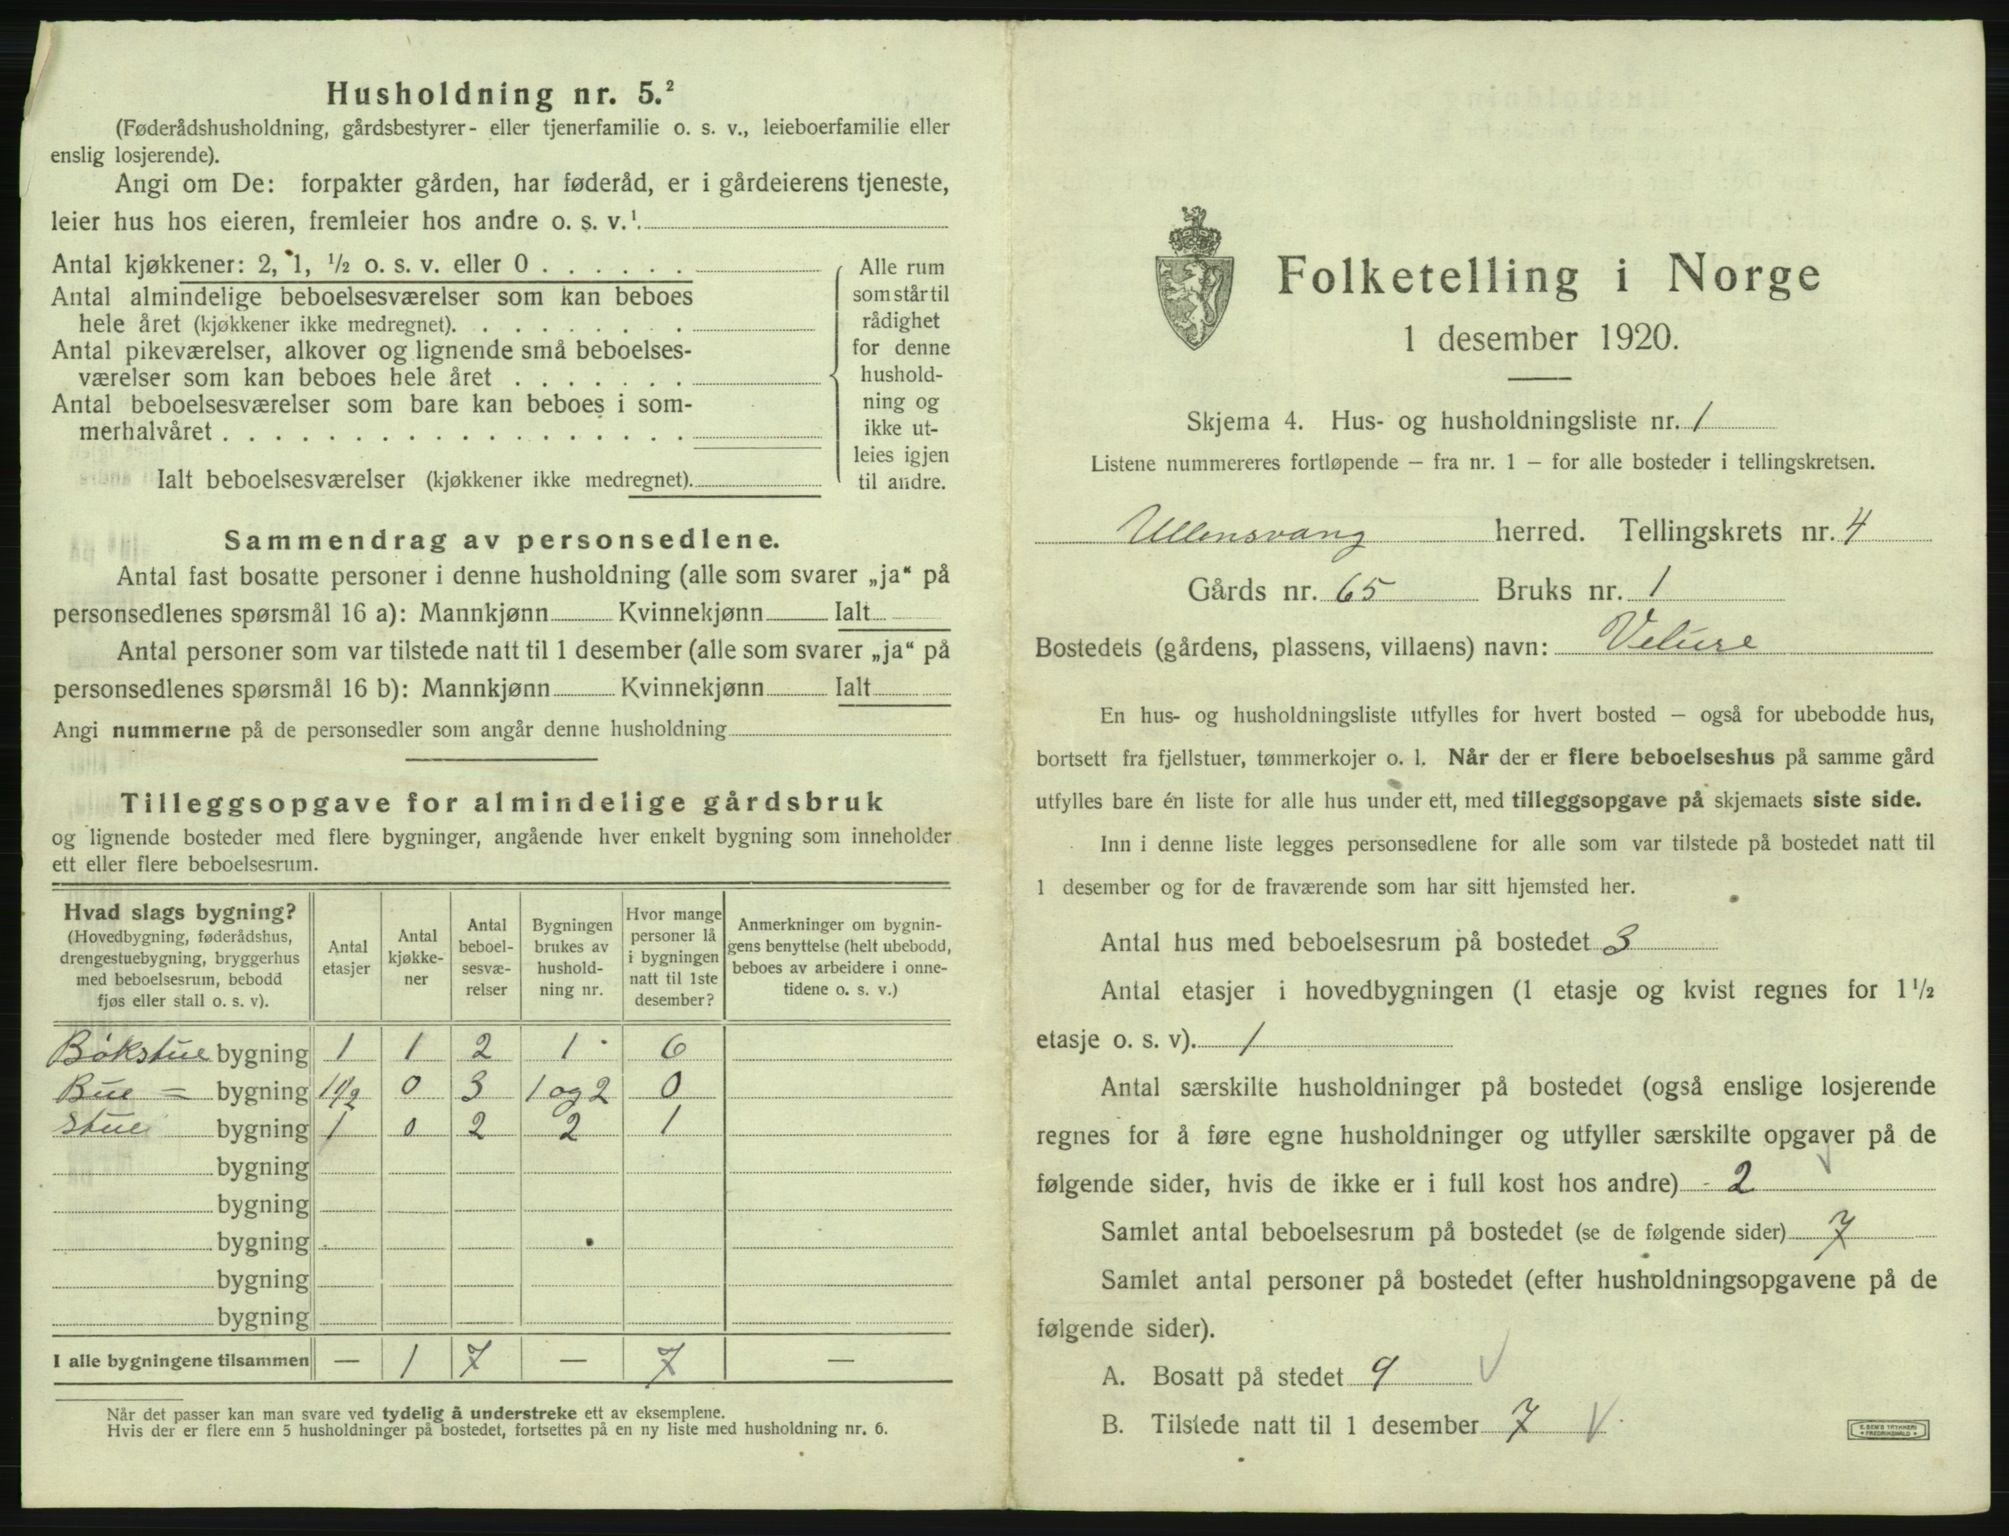 Husholdning nr. 5.²
(Føderådshusholdning, gårdsbestyrer- eller tjenerfamilie o. s. v., leieboerfamilie eller
enslig losjerende).
Angi om De: forpakter gården, har føderåd, er i gårdeierens tjeneste,
leier hus hos eieren, fremleier hos andre o. s. v.¹
Antal kjøkkener: 2, 1, ½ o. s. v. eller 0
Antal almindelige beboelsesværelser som kan beboes
hele året (kjøkkener ikke medregnet).
Antal pikeværelser, alkover og lignende små beboelses-
værelser som kan beboes hele året
Antal beboelsesværelser som bare kan beboes i som-
merhalvåret
Ialt beboelsesværelser (kjøkkener ikke medregnet).
Alle rum
som står til
rådighet
for denne
hushold-
ning og
ikke ut-
leies igjen
til andre.
Sammendrag av personsedlene.
Antal fast bosatte personer i denne husholdning (alle som svarer „ja“ på
personsedlenes spørsmål 16 a): Mannkjønn Kvinnekjønn Ialt
Antal personer som var tilstede natt til 1 desember (alle som svarer „ja“ på
personsedlenes spørsmål 16 b): Mannkjønn Kvinnekjønn Ialt
Angi nummerne på de personsedler som angår denne husholdning
Tilleggsopgave for almindelige gårdsbruk
og lignende bosteder med flere bygninger, angående hver enkelt bygning som inneholder
ett eller flere beboelsesrum.
Hvad slags bygning?
(Hovedbygning, føderådshus,
drengestuebygning, bryggerhus
med beboelsesrum, bebodd
fjøs eller stall o. s. v).
Antal
etasjer
Antal
kjøkke-
ner
Antal
beboel-
sesvæ-
relser
Bygningen
brukes av
hushold-
ning nr.
Hvor mange
personer lå
i bygningen
natt til 1ste
desember?
Anmerkninger om bygnin-
gens benyttelse (helt ubebodd,
beboes av arbeidere i onne-
tidene o. s. v.)
Bøkstue bygning 1 1 2 1 6
Bue = bygning 1 1/2 0 3 1 og 2 0
Stue bygning 1 0 2 2 1
bygning
bygning
bygning
bygning
bygning
I alle bygningene tilsammen — 1 7 — 7 —
Når det passer kan man svare ved tydelig å understreke ett av eksemplene.
Hvis der er flere enn 5 husholdninger på bostedet, fortsettes på en ny liste med husholdning nr. 6.
Folketelling i Norge
1 desember 1920.
Skjema 4. Hus- og husholdningsliste nr. 1
Listene nummereres fortløpende – fra nr. 1 – for alle bosteder i tellingskretsen.
Ullensvang herred. Tellingskrets nr. 4
Gårds nr. 65 Bruks nr. 1
Bostedets (gårdens, plassens, villaens) navn: Velure
En hus- og husholdningsliste utfylles for hvert bosted – også for ubebodde hus,
bortsett fra fjellstuer, tømmerkojer o. l. Når der er flere beboelseshus på samme gård
utfylles bare én liste for alle hus under ett, med tilleggsopgave på skjemaets siste side.
Inn i denne liste legges personsedlene for alle som var tilstede på bostedet natt til
1 desember og for de fraværende som har sitt hjemsted her.
Antal hus med beboelsesrum på bostedet 3
Antal etasjer i hovedbygningen (1 etasje og kvist regnes for 1 ½
etasje o. s. v). 1
Antal særskilte husholdninger på bostedet (også enslige losjerende
regnes for å føre egne husholdninger og utfyller særskilte opgaver på de
følgende sider, hvis de ikke er i full kost hos andre) - 2
Samlet antal beboelsesrum på bostedet (se de følgende sider) 7
Samlet antal personer på bostedet (efter husholdningsopgavene på de
følgende sider).
A. Bosatt på stedet 9
B. Tilstede natt til 1 desember 7
E. SEM'S TRYKKERI
FREDRIKSHALD